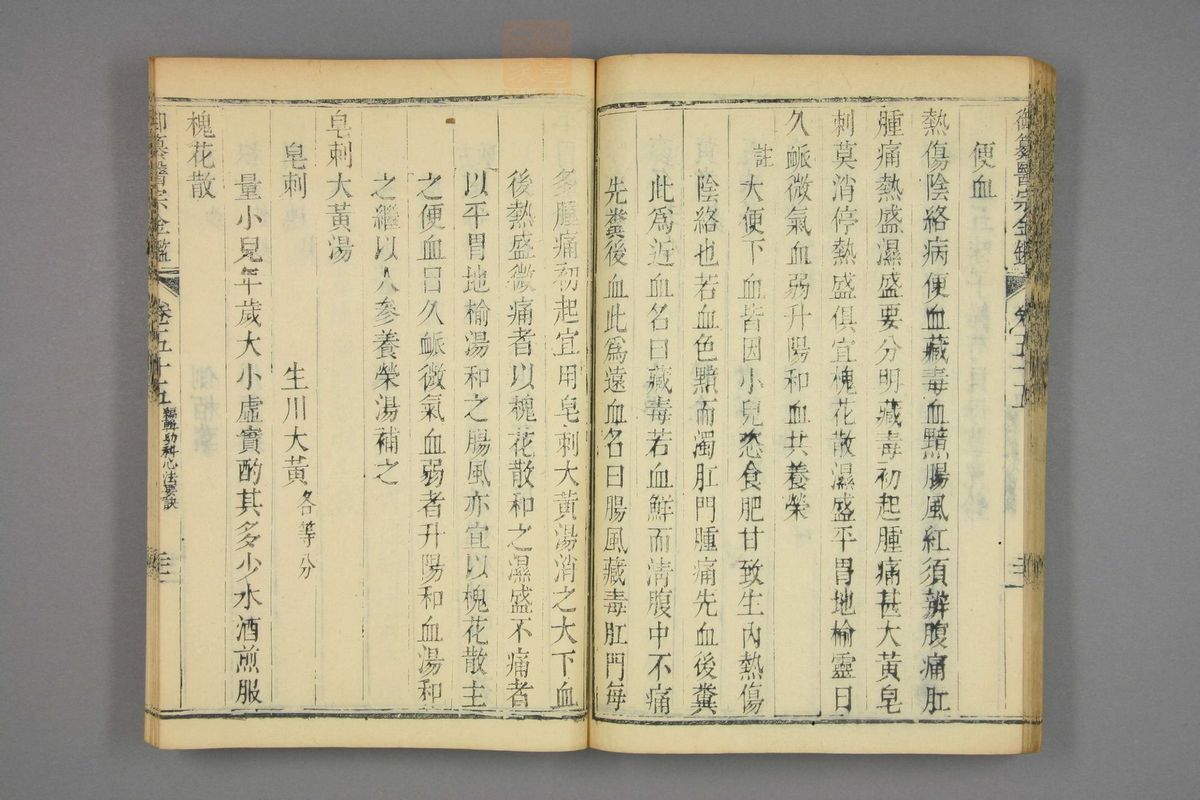 御纂醫宗金鑑
便血
熱傷陰絡病便血藏毒血黯腸風紅須辨腹痛肛
腫痛熱盛濕盛要分明藏毒初起腫痛甚大黃皂
刺莫消停熱盛俱宜槐花散濕盛平胃地榆靈日
久衇微氣血弱升陽和血共養榮
註大便下血皆因小兒恣食肥甘致生內熱傷
陰絡也若血色黯而濁肛門腫痛先血後糞
此爲近血名曰藏毒若血鮮而淸腹中不痛
先糞後血此爲遠血名曰腸風藏毒肛門每
多腫痛初起宜用皂刺大黃湯消之大下血
後熱盛微痛者以槐花散和之濕盛不痛者
以平胃地榆湯和之腸風亦宜以槐花散主
之便血日久衇微氣血弱者升陽和血湯和
之繼以人參養榮湯補之
皂刺大黃湯
皂刺 生川大黃各等分
量小兒年歲大小虛實酌其多少水酒煎服
槐花散
御纂醫宗金鑑 卷五十五 編輯幼科心法要訣